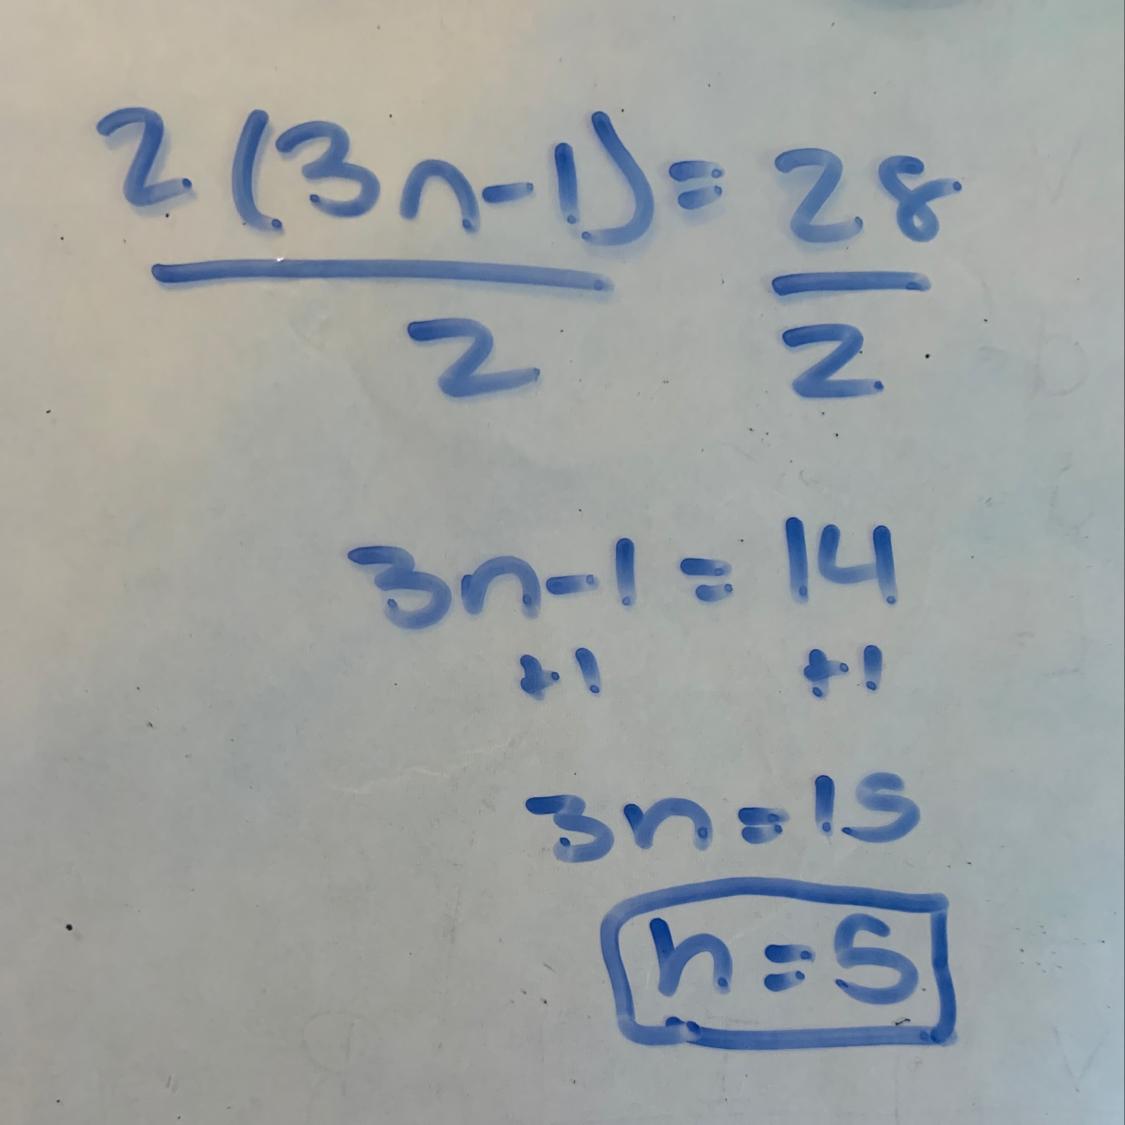 2(3n-1)=28
2 2
3n-1=14
+1 +1
3n=15
n=5